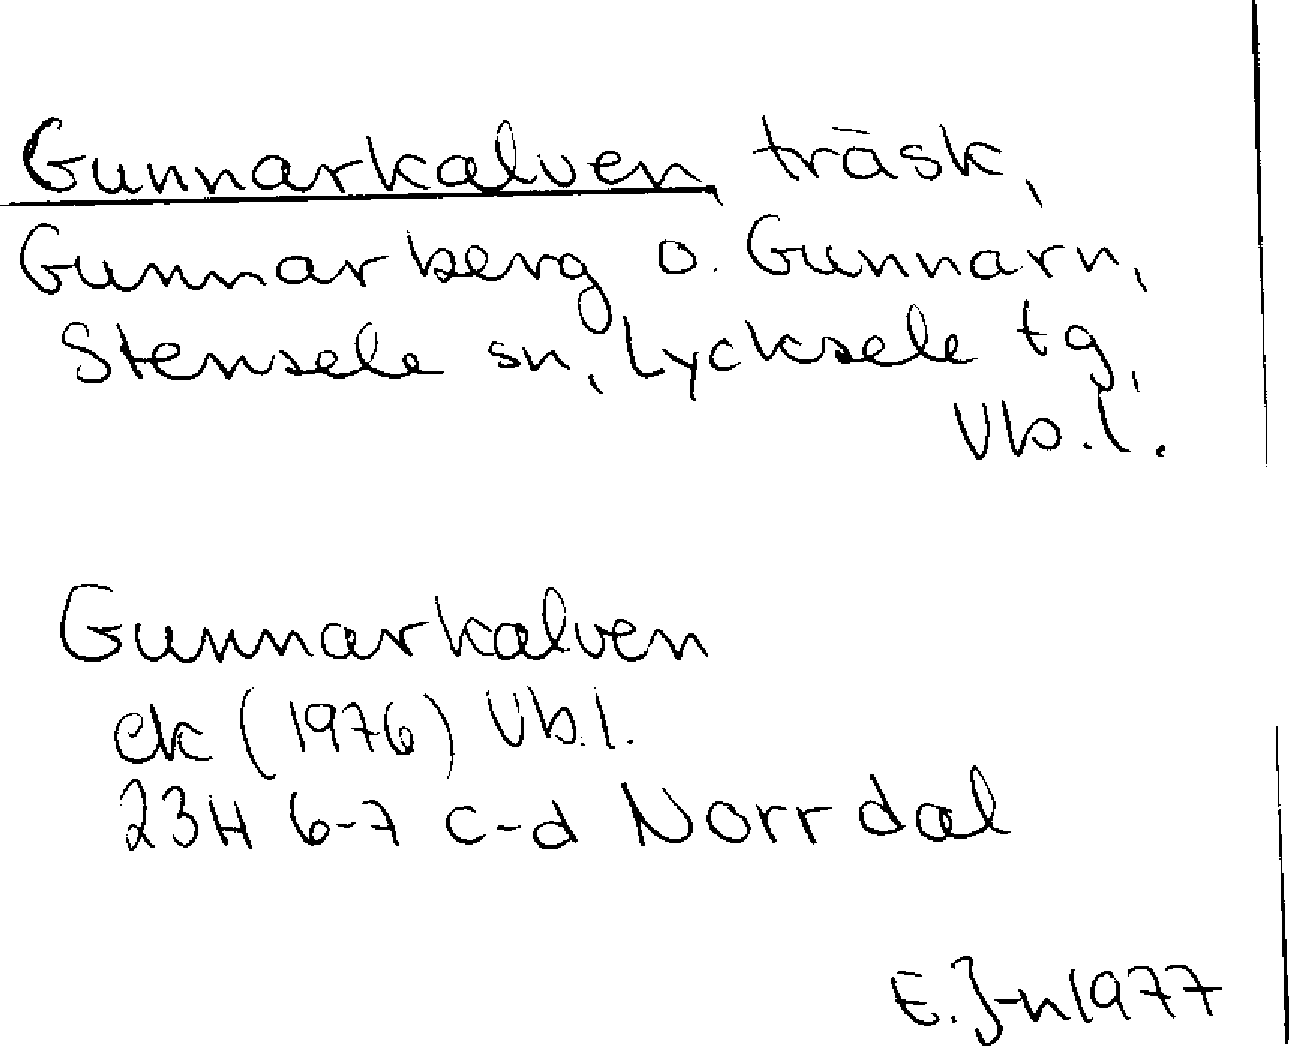 Gunnarkalven, träsk,
Gunnarberg o. Gunnarn,
Stensele sn, Lycksele tg,
Vb.l.
Gunnarkalven
ek (1976) Vb.l.
23H 6-7 c-d Norrdal
E. J-n 1977